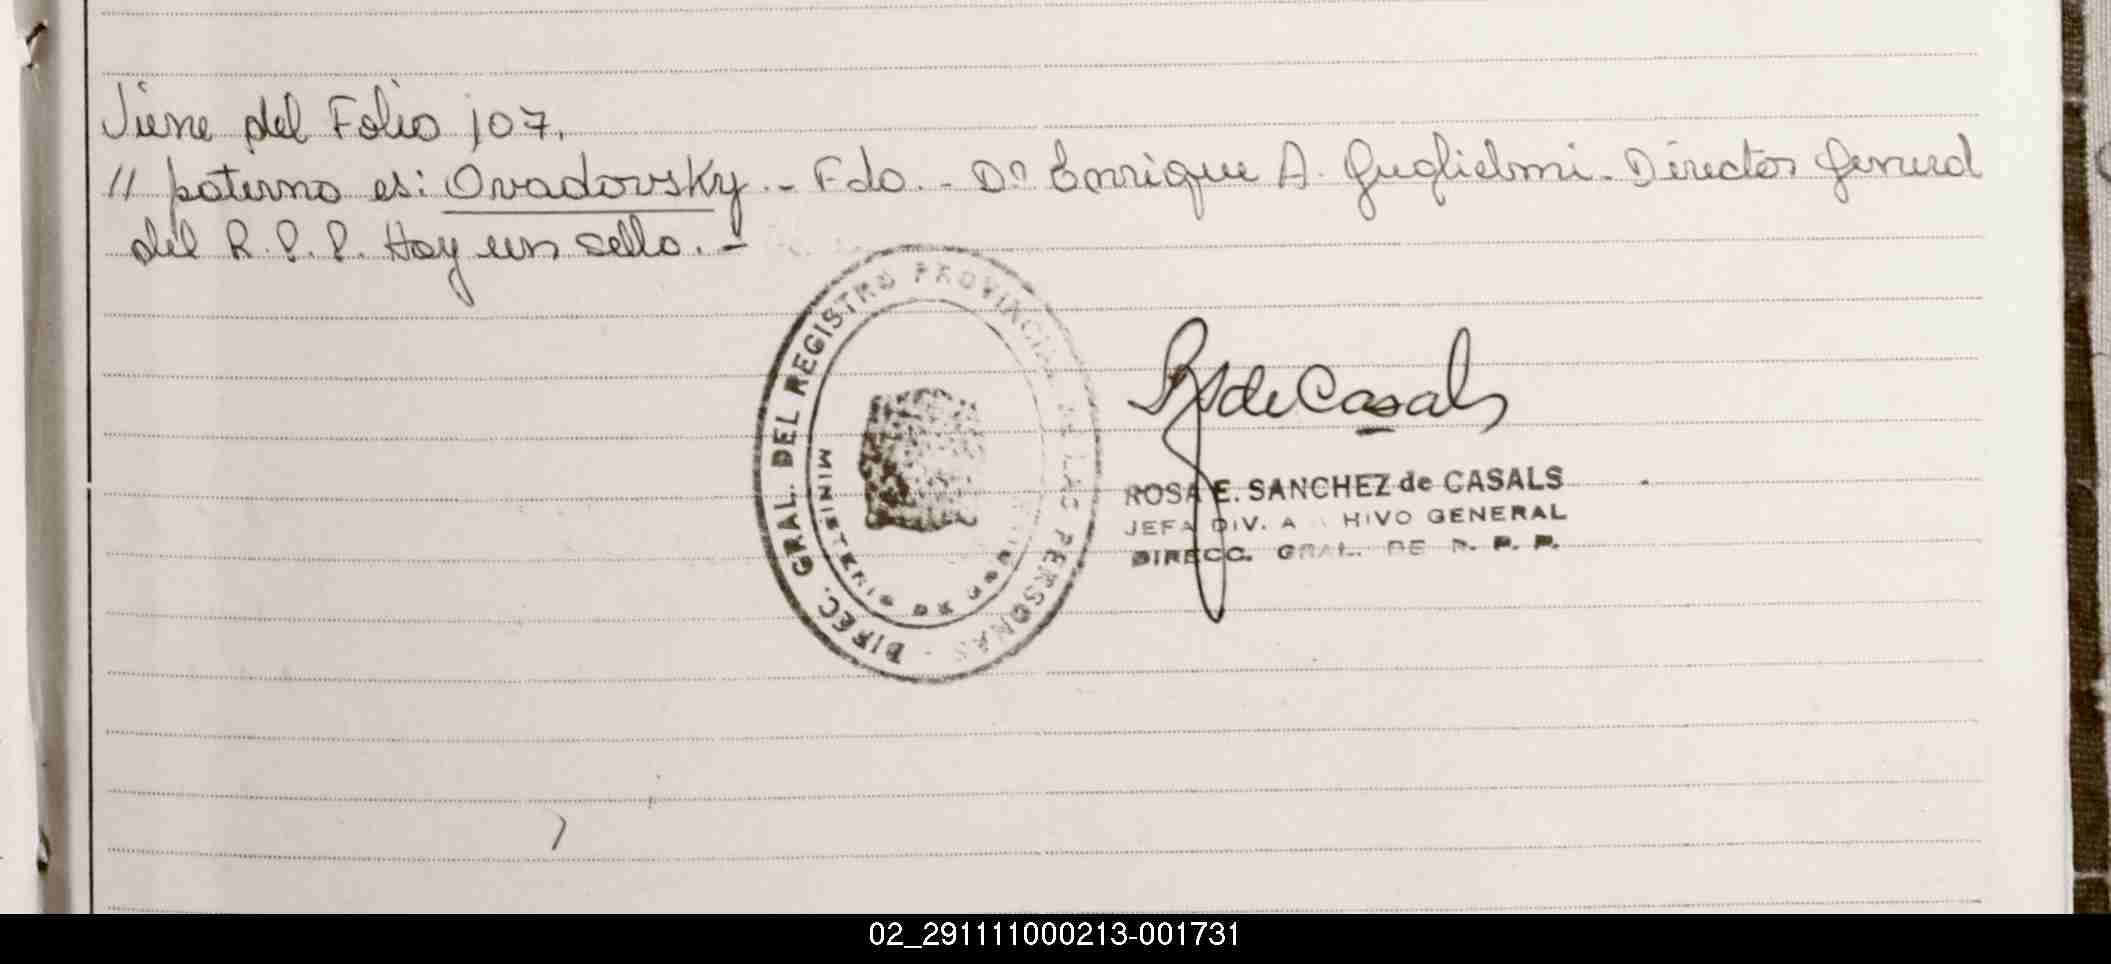 Viene del Folio 107.
// paterno es: Ovadovsky.- Fdo.- Dn Enrique A. Guglielmi - Director General
del R.P.P. Hay un sello.-
DIREC. GRAL. DEL REGISTRO PROVINCIAL DE LAS PERSONAS -
MINISTERIO DE
S de Casals
ROSA E. SANCHEZ de CASALS
JEFA DIV. A HIVO GENERAL
DIRECC. GRAL. DE R. P. P.
02_291111000213-001731